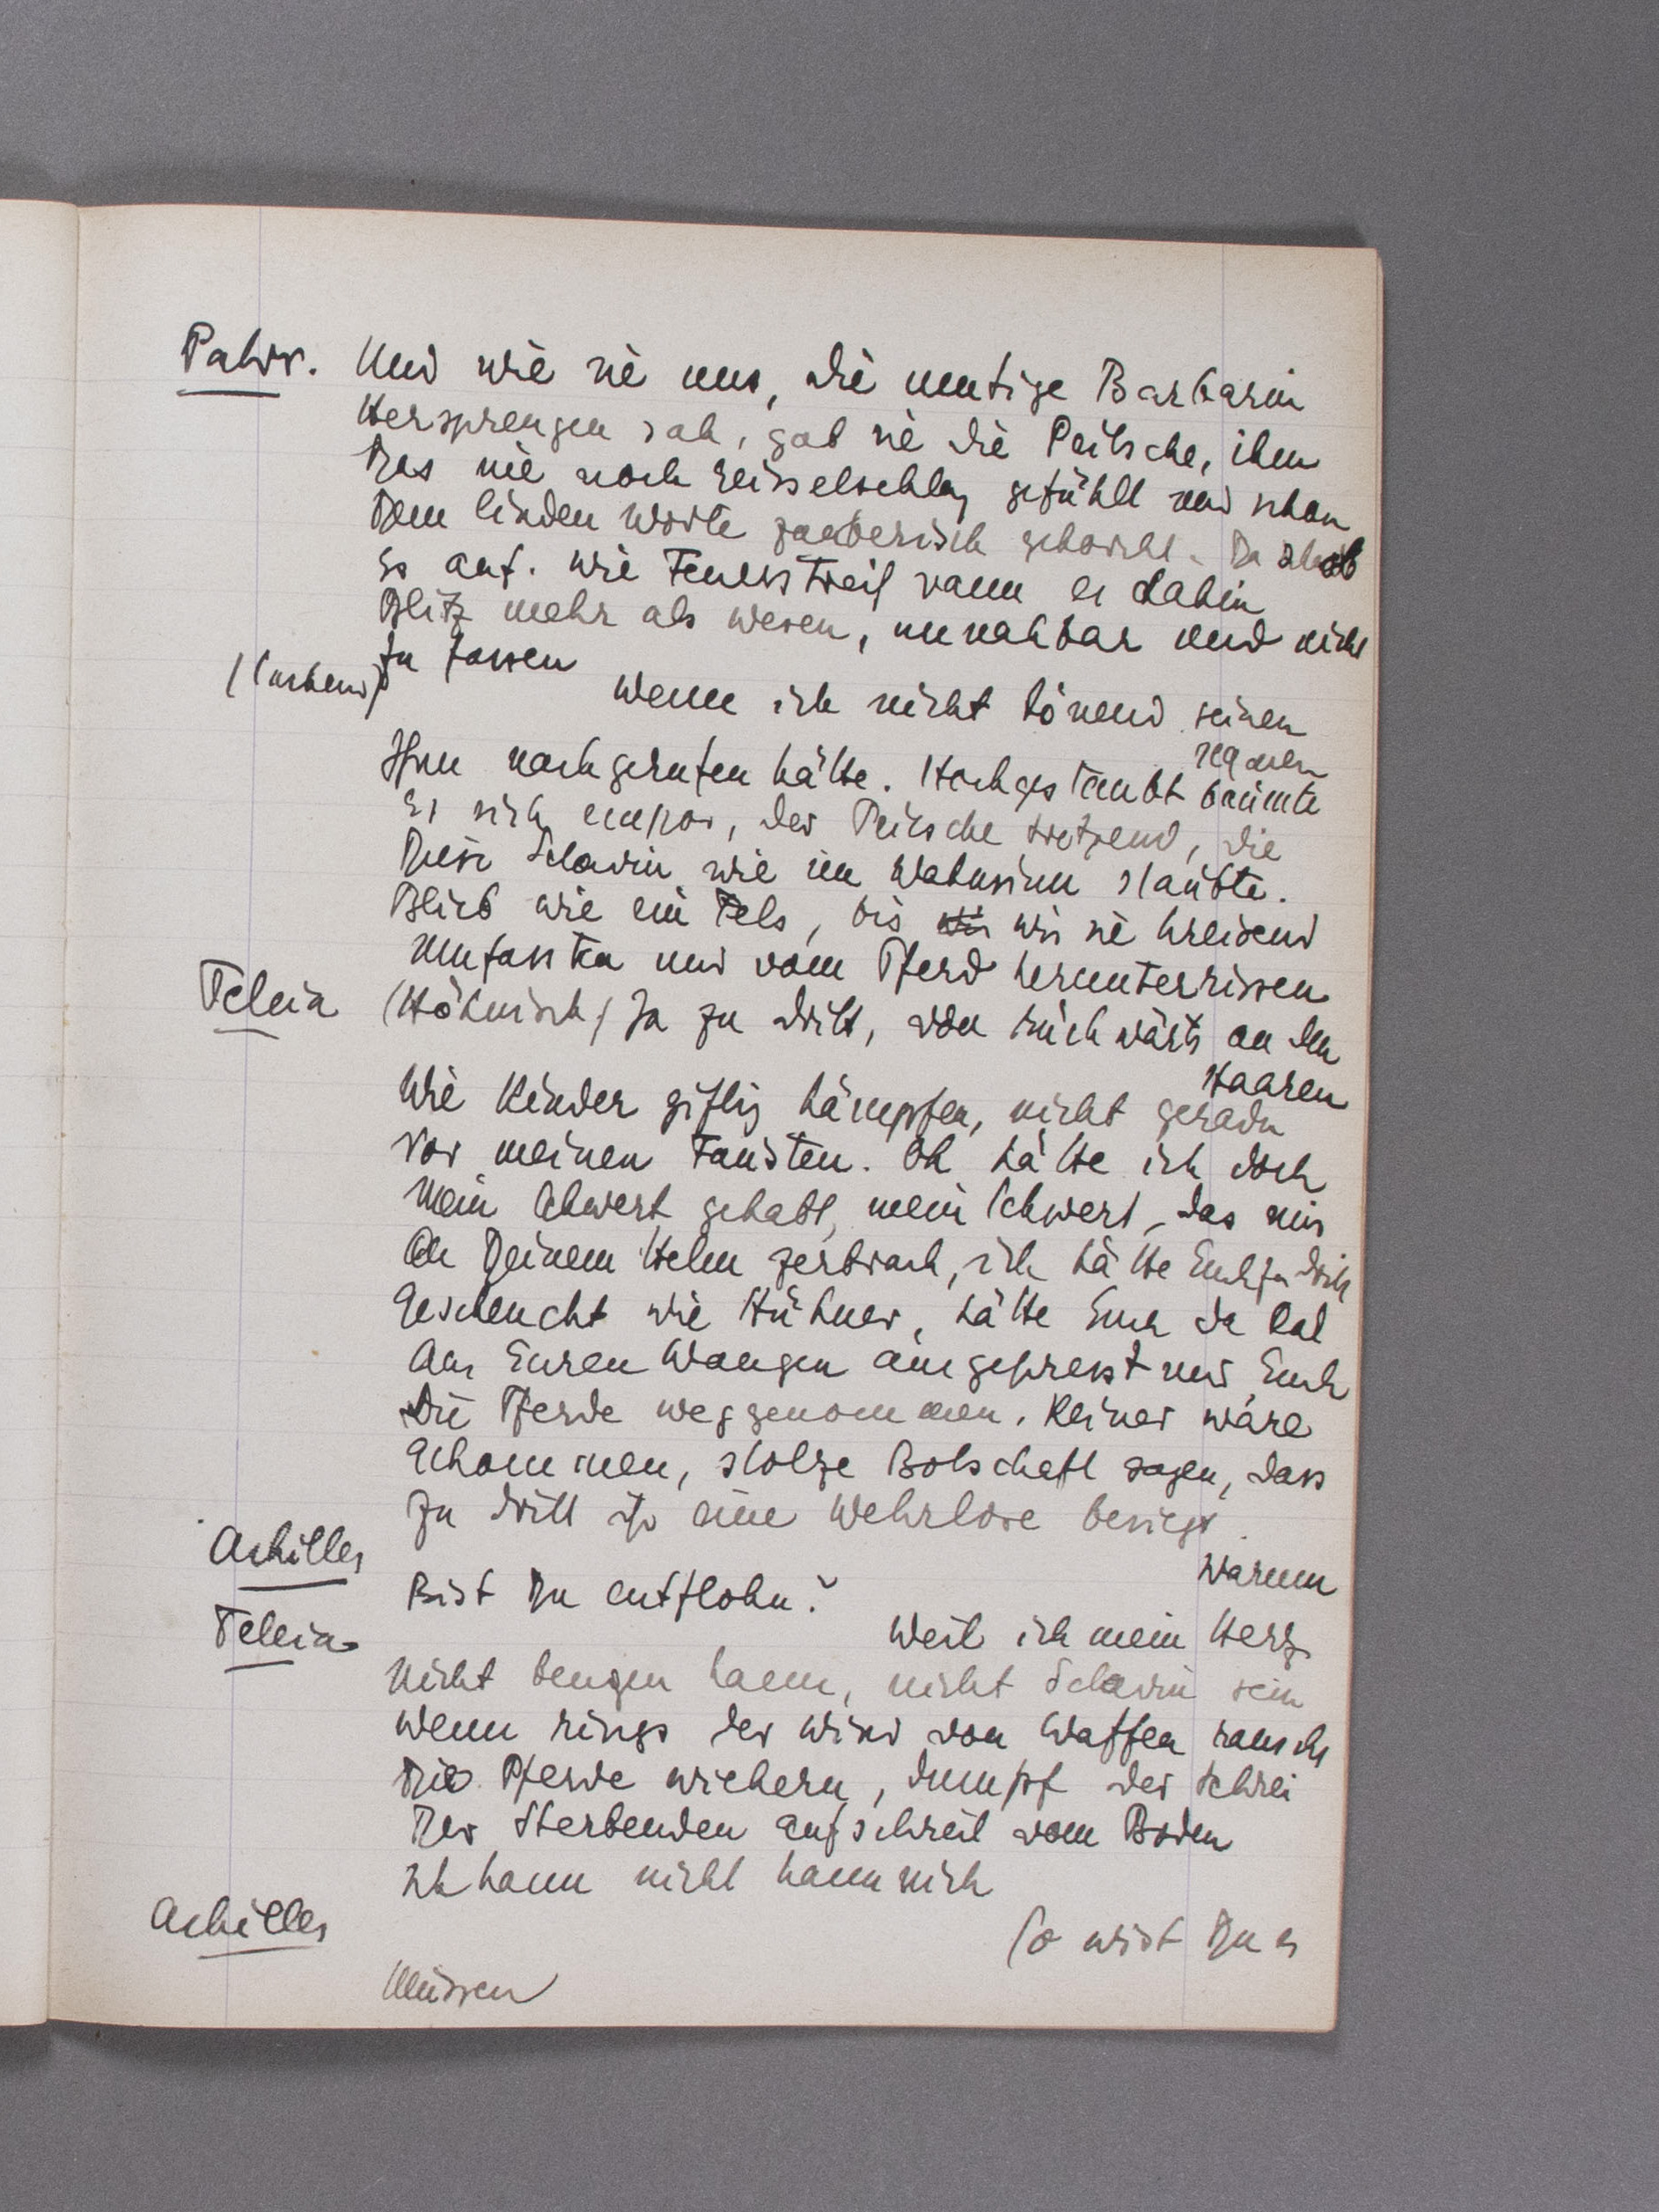 Patrr. Und wie sie uns, die mutige Barbarin
Hersprengen sah, gab sie die Peitsche, ihm
Das nie noch Geisselschlag gefühlt und schon
Dem linden Worte zauberisch gehorcht. Da stob
Es auf. Wie Feuerstreif rann er dahin
Blitz mehr als Wesen, unnahbar und nicht
Zu fassen
(lachend) Wenn ich nicht tönend seinen
Namen
Ihm nachgerufen hätte. Hochgestaubt bäumte
Er sich empor, der Peitsche trotzend, die
Diese Sclavin wie im Wahnsinn stäubte.
Blieb wie ein Fels, bis wir sie kreisend
Umfassten und vom Pferd herunterrissen
Teleia (Höhnisch) Ja zu dritt, von rückwärts an den
Haaren
Wie Kinder giftig kämpfen, nicht gerade
Vor meinen Fäusten. Oh hätte ich doch
Mein Schwert gehabt, mein Schwert, das mir
An Deinem Helm zerbrach, ich hätte Euch zu dritt
Gescheucht wie Hühner, hätte Euch da Rot
Aus Euren Wangen ausgepresst und Euch
Die Pferde weggenommen. Keiner wäre
Gekommen, stolze Botschaft sagen, dass
Zu dritt ihr eine Wehrlose besiegt.
Achilles Warum
Bist Du entflohn?
Teleia Weil ich mein Herz
Nicht beugen kann, nicht Sclavin sein
Wenn rings der Wind von Waffen rauscht
Die Pferde wiehern, dumpf der Schrei
Der Sterbenden aufschreit vom Boden
Ich kann nicht kann nicht
Achilles So wirst Du es
Müssen